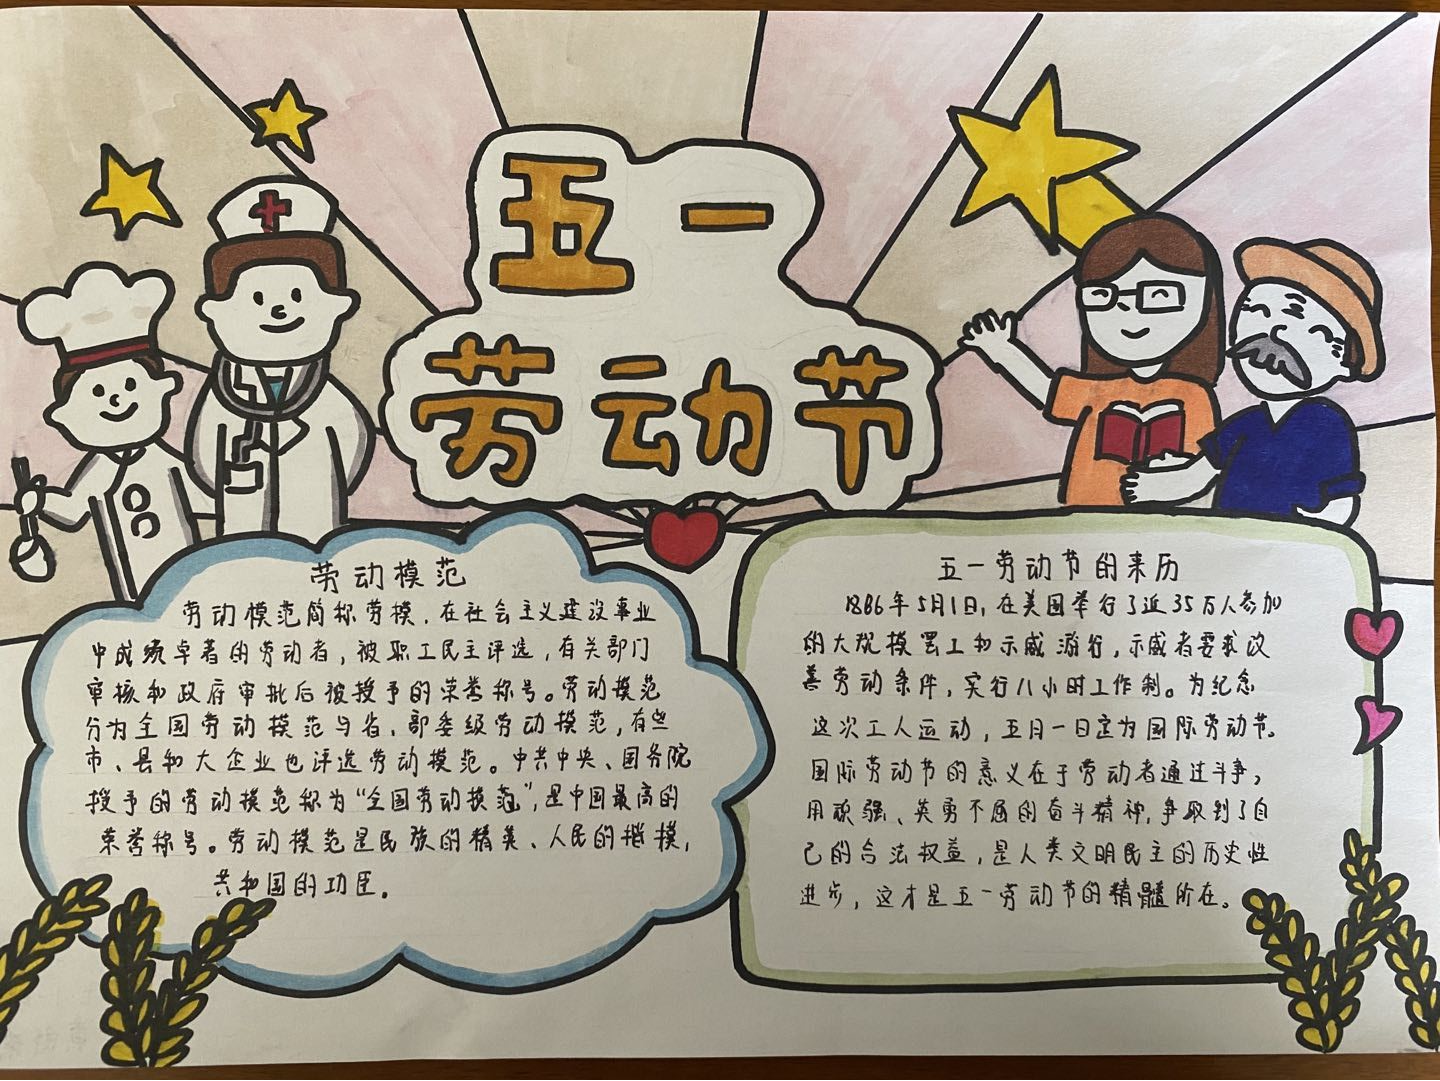 五一
劳动节
劳动模范
劳动模范简称劳模，在社会主义建设事业
中成绩卓著的劳动者，被职工民主评选，有关部门
审核和政府审批后被授予的荣誉称号。劳动模范
分为全国劳动模范与省、部委级劳动模范，有些
市、县和大企业也评选劳动模范。中共中央、国务院
授予的劳动模范称为“全国劳动模范”，是中国最高的
荣誉称号。劳动模范是民族的精英、人民的楷模，
共和国的功臣。
五一劳动节的来历
1886年5月1日，在美国举行了近35万人参加
的大规模罢工和示威游行，示威者要求改
善劳动条件，实行八小时工作制。为纪念
这次工人运动，五月一日定为国际劳动节。
国际劳动节的意义在于劳动者通过斗争，
用顽强、英勇不屈的奋斗精神，争取到了自
己的合法权益，是人类文明民主的历史性
进步，这才是五一劳动节的精髓所在。